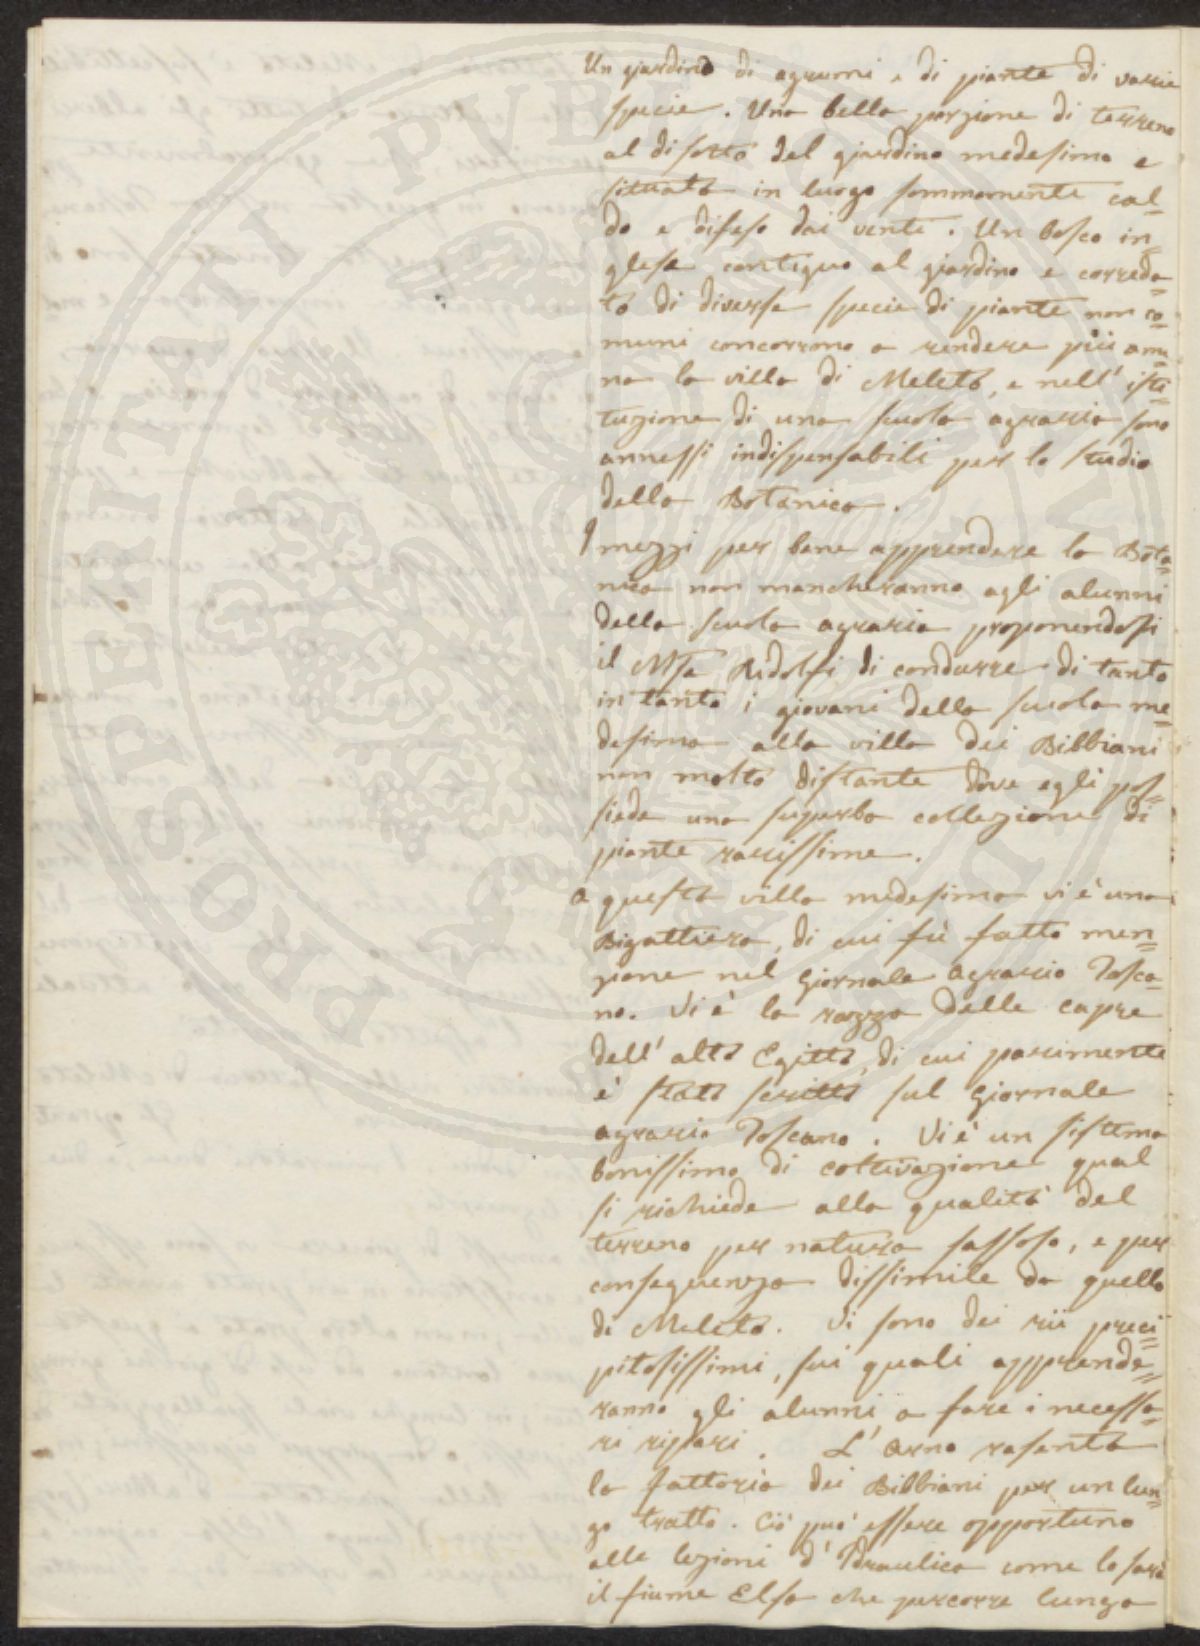 Un giardino di agrumi e di piante di varie
specie. Una bella porzione di terreno
al disotto del giardino medesimo e
situato in luogo sommamente cal=
do e difeso dai venti. Un bosco in=
glese contiguo al giardino e correda=
to di diverse specie di piante non co=
muni concorrono a rendere più ame=
na la villa di Meleto, e nell' isti=
tuzione di una scuola agraria sono
annessi indispensabili per lo studio
della Botanica.
I mezzi per bene apprendere la Bota=
nica non mancheranno agli alunni
della scuola agraria proponendosi
il Mse Ridolfi di condurre di tanto
in tanto i giovani della scuola me=
desima alla villa dei Bibbiani
non molto distante dove egli pos=
siede una superba collezione di
piante rarissime.
A questa villa medesima vi è una
Bigattiera, di cui fù fatto men=
zione nel Giornale Agrario Tosca=
no. Vi è la razza delle capre
dell' alto Egitto, di cui parimente
è stato scritto sul Giornale
agrario Toscano. Vi è un sistema
bonissimo di coltivazione qual
si richiede alla qualità del
terreno per natura sassoso, e per
conseguenza dissimile da quello
di Meleto. Vi sono dei rii preci=
pitosissimi, sui quali apprende=
ranno gli alunni a fare i necessa=
ri ripari. L' Arno rasenta
la fattoria dei Bibbiani per un lun=
go tratto. Ciò può essere opportuno
alle lezioni d' Idraulica come lo sarà
il fiume Elsa che percorre lungo
PROSPERITATI PVBLICAE